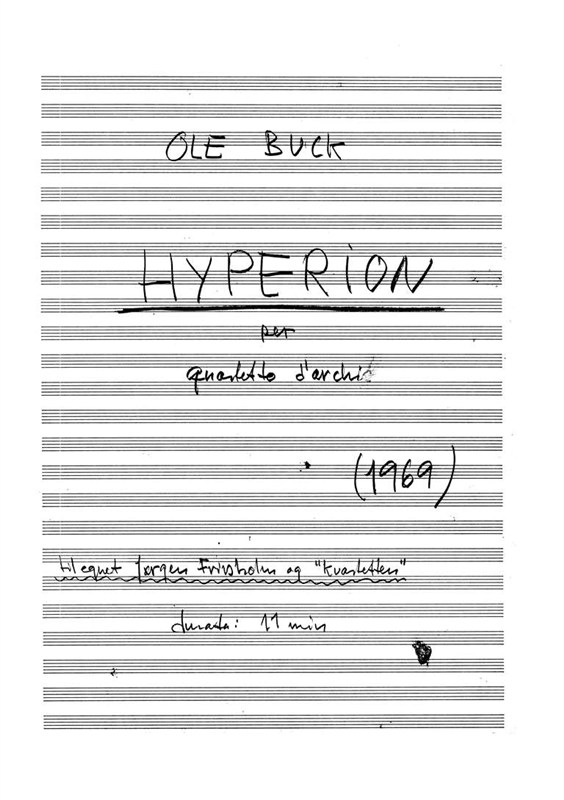 OLE BUCK
HYPERION
per
quartetto d'archi
(1969)
tilegnet Jørgen Friisholm og "Kvartetten"
durata: 11 min